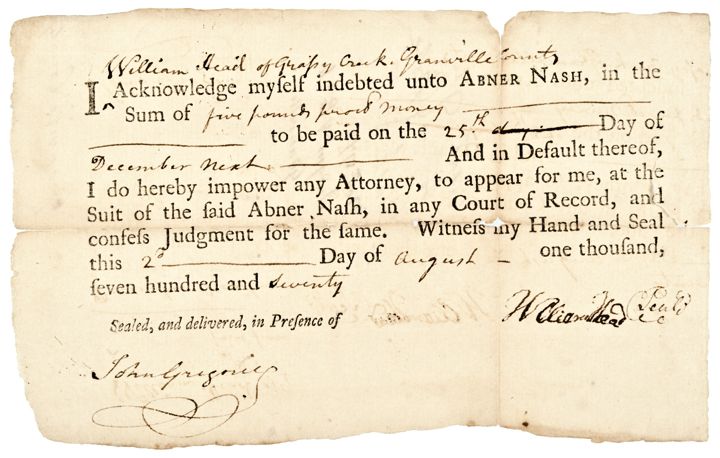 William Head of Graſsy Creek Granville County
I Acknowledge myſelf indebted unto ABNER NASH, in the
Sum of five pounds proc̄ money
to be paid on the 25th day Day of
December next And in Default thereof,
I do hereby impower any Attorney, to appear for me, at the
Suit of the ſaid Abner Naſh, in any Court of Record, and
confeſs Judgment for the ſame. Witneſs my Hand and Seal
this 2d Day of August one thouſand,
ſeven hundred and Seventy
Sealed, and delivered, in Preſence of
William Head (Seal)
John Gregorie